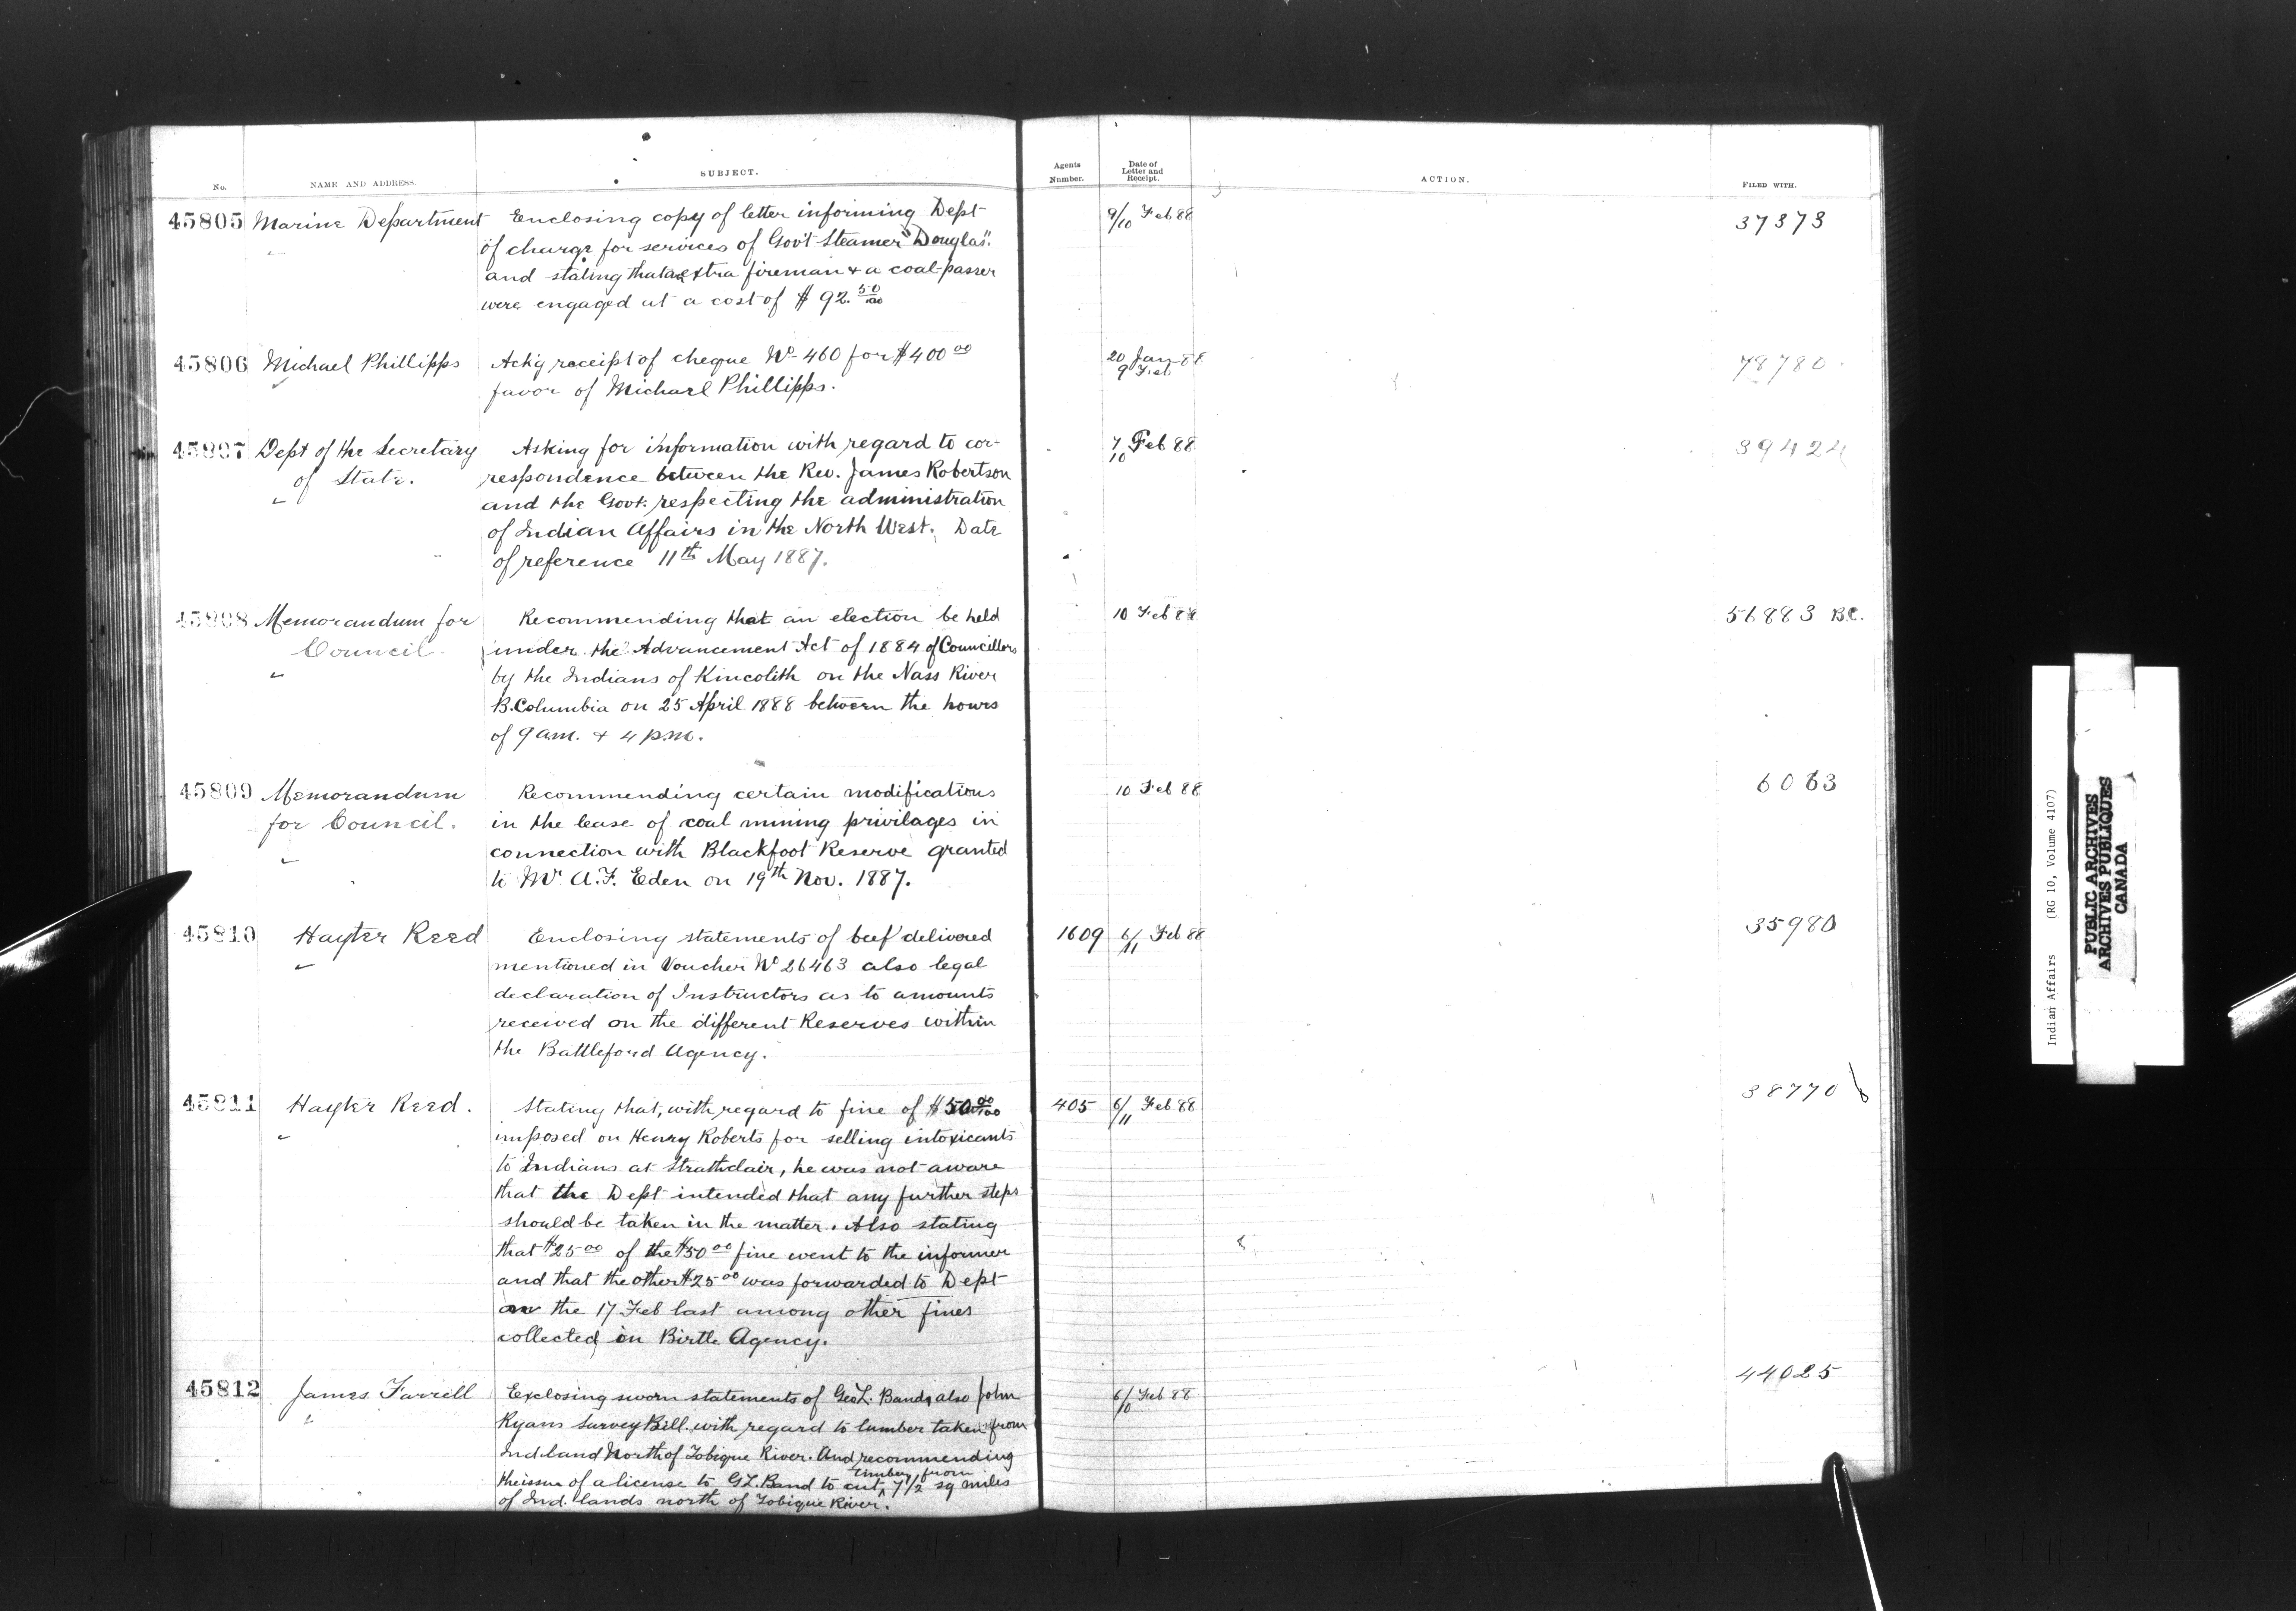 No.
NAME AND ADDRESS.
SUBJECT.
Agents Number.
Date of Letter and Receipt.
ACTION.
FILED WITH.
45805 Marine Department Enclosing copy of letter informing Dept 9/10 Feb 88 37373
of charge for services of Gov't Steamer "Douglas".
and stating that a extra fireman & a coal-passer
were engaged at a cost of $92.50/100
45806 Michael Phillipps Ackg receipt of cheque No 460 for $400 00 20 Jan 88 78780
favor of Michael Phillipps. 9 Feb
45807 Dept of the Secretary Asking for information with regard to cor- 7/10 Feb 88 39424
of State. respondence between the Rev. James Robertson
and the Govt. respecting the administration
of Indian Affairs in the North West. Date
of reference 11th May 1887.
45808 Memorandum for Recommending that an election be held 10 Feb 88 56883 B.C.
Council. under the Advancement Act of 1884 of Councillors
by the Indians of Kincolith on the Nass River
B.Columbia on 25 April 1888 between the hours
of 9 a.m. & 4 p.m.
45809 Memorandum Recommending certain modifications 10 Feb 88 6083
for Council. in the lease of coal mining privilages in
connection with Blackfoot Reserve granted
to Mr A.F. Eden on 19th Nov. 1887.
45810 Hayter Reed Enclosing statements of beef delivered 1609 6/11 Feb 88 35980
mentioned in Voucher No 26463 also legal
declaration of Instructors as to amounts
received on the different Reserves within
the Battleford Agency.
45811 Hayter Reed. Stating that, with regard to fine of $50 00/100 405 6/11 Feb 88 38770
imposed on Henry Roberts for selling intoxicants
to Indians at Strathclair, he was not aware
that the Dept intended that any further steps
should be taken in the matter. Also stating
that $25 00 of the $50 00 fine went to the informer
and that the other $25 00 was forwarded to Dept
on the 17 Feb last among other fines
collected in Birtle Agency.
45812 James Farrell Exclosing sworn statements of Geo L. Band, also John 6/10 Feb 88 44025
Ryans Survey Bill. with regard to lumber taken from
Ind. land North of Tobique River. And recommending
the issue of a license to G L. Band to cut timber from 7 1/2 sq miles
of Ind. lands north of Tobique River.
Indian Affairs (RG 10, Volume 4107)
PUBLIC ARCHIVES
ARCHIVES PUBLIQUES
CANADA